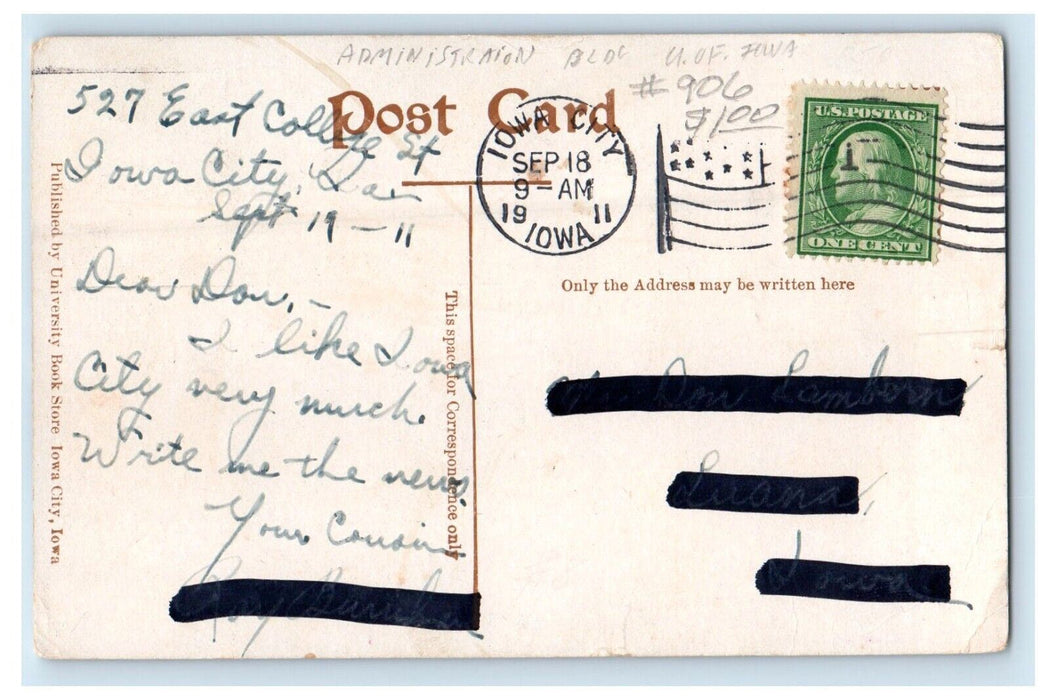 ADMINISTRAION BLDG U. OF. IOWA
#906
$1.00
Post Card
527 East College St
Iowa City, Ia
Sept 19 - 11
Dear Don, -
I like Iowa
City very much.
Write me the news.
Your Cousin
IOWA CITY
SEP 18
9 - AM
19 11
IOWA
U.S. POSTAGE
1
ONE CENT
Only the Address may be written here
This space for Correspondence only
Published by University Book Store Iowa City, Iowa